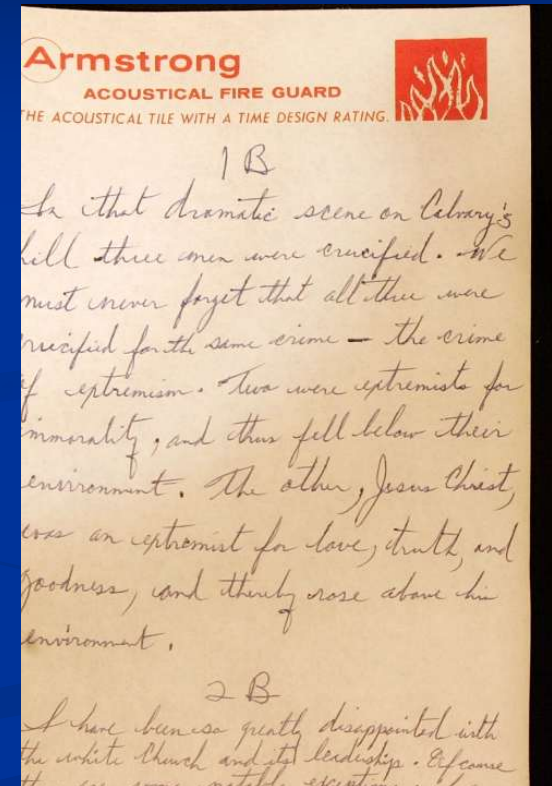 Armstrong
ACOUSTICAL FIRE GUARD
THE ACOUSTICAL TILE WITH A TIME DESIGN RATING.
1 B
In that dramatic scene on Calvary's
hill three men were crucified. We
must never forget that all three were
crucified for the same crime — the crime
of extremism. Two were extremists for
immorality, and thus fell below their
environment. The other, Jesus Christ,
was an extremist for love, truth, and
goodness, and thereby rose above his
environment.
2 B
I have been so greatly disappointed with
the white Church and its leadership. Of course
there are some notable exceptions